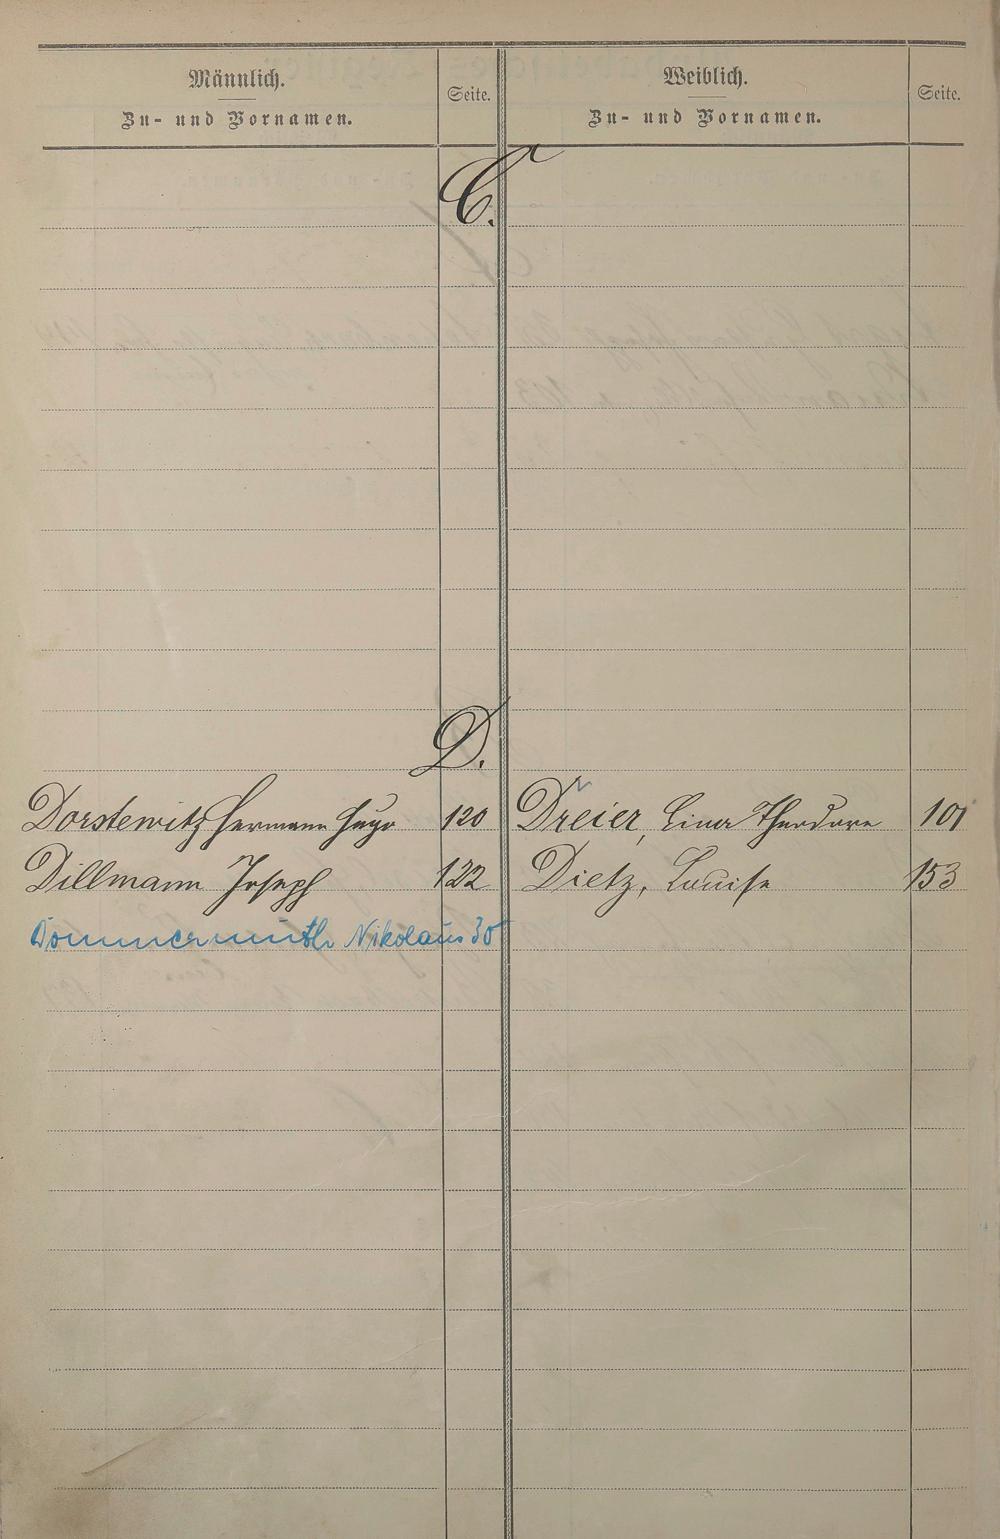 Männlich.
Zu- und Vornamen.
Seite.
Weiblich.
Zu- und Vornamen.
Seite.
C.
D.
Dorstewitz Hermann Hugo 120
Dreier, Lina Theodore 101
Dillmann Joseph 122
Dietz, Louise 153
Dommermuth Nikolaus 30